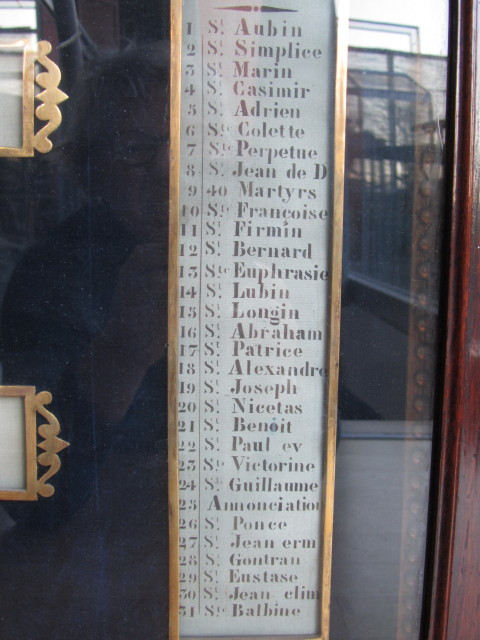 1 St. Aubin
2 St. Simplice
3 St. Marin
4 St. Casimir
5 St. Adrien
6 Ste. Colette
7 Ste. Perpetue
8 St. Jean de D
9 40 Martyrs
10 Ste. Françoise
11 St. Firmin
12 St. Bernard
13 Ste. Euphrasie
14 St. Lubin
15 St. Longin
16 St. Abraham
17 St. Patrice
18 St. Alexandre
19 St. Joseph
20 St. Nicetas
21 St. Benoit
22 St. Paul ev
23 Ste. Victorine
24 St. Guillaume
25 Annonciation
26 St. Ponce
27 St. Jean erm
28 St. Gontran
29 St. Eustase
30 St. Jean clim
31 Ste. Balbine